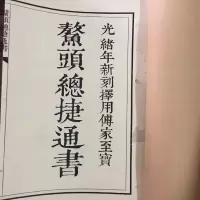 光緒年新刻擇用傅家至寶
鰲頭總捷通書